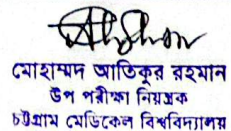 মোহাম্মদ আতিকুর রহমান
উপ পরীক্ষা নিয়ন্ত্রক
চট্টগ্রাম মেডিকেল বিশ্ববিদ্যালয়